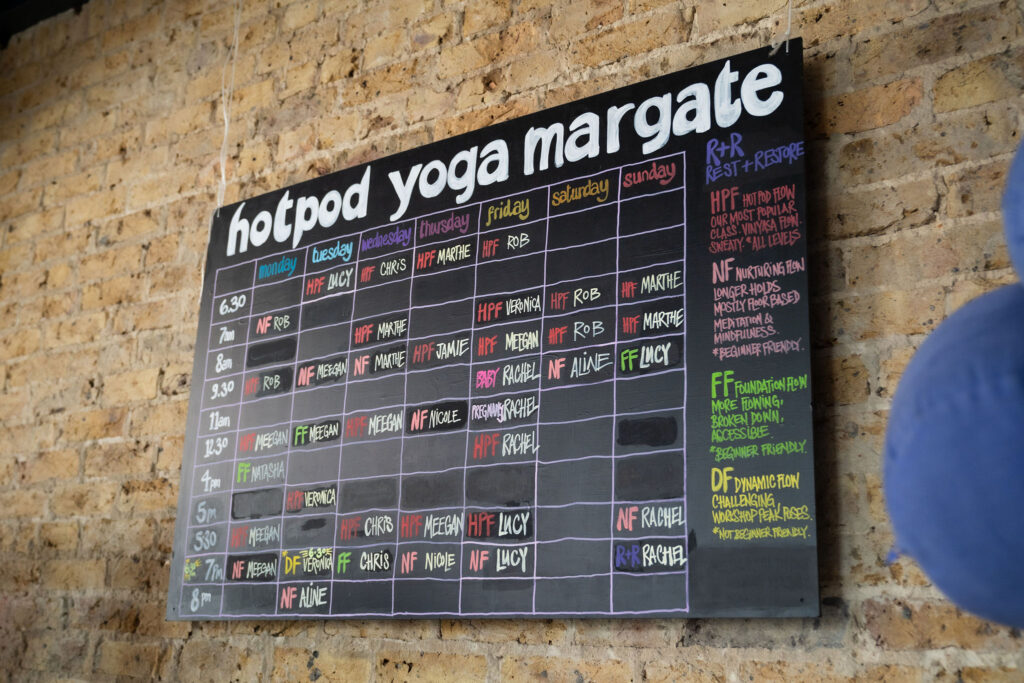 hotpod yoga margate
monday tuesday wednesday thursday friday saturday sunday
6.30 HPF LUCY HPF CHRIS HPF MARTHE HPF ROB
7am NF ROB
8am HPF MARTHE HPF VERONICA HPF ROB HPF MARTHE
9.30 HPF ROB NF MEEGAN NF MARTHE HPF JAMIE HPF MEEGAN HPF ROB HPF MARTHE
11am BABY RACHEL NF ALINE FF LUCY
12.30 HPF MEEGAN FF MEEGAN HPF MEEGAN NF NICOLE PREGNANCY RACHEL
4pm FF NATASHA HPF RACHEL
5pm HPF VERONICA
5.30 HPF MEEGAN HPF CHRIS HPF MEEGAN HPF LUCY NF RACHEL
7pm NF MEEGAN *6.30* DF VERONICA FF CHRIS NF NICOLE NF LUCY R+R RACHEL
8pm NF ALINE
R+R
REST + RESTORE
HPF HOTPOD FLOW
OUR MOST POPULAR
CLASS. VINYASA FLOW.
SWEATY. *ALL LEVELS
NF NURTURING FLOW
LONGER HOLDS
MOSTLY FLOOR BASED
MEDITATION &
MINDFULNESS.
*BEGINNER FRIENDLY.
FF FOUNDATION FLOW
MORE FLOWING,
BROKEN DOWN,
ACCESSIBLE.
*BEGINNER FRIENDLY.
DF DYNAMIC FLOW
CHALLENGING,
WORKSHOP PEAK POSES.
*NOT BEGINNER FRIENDLY.